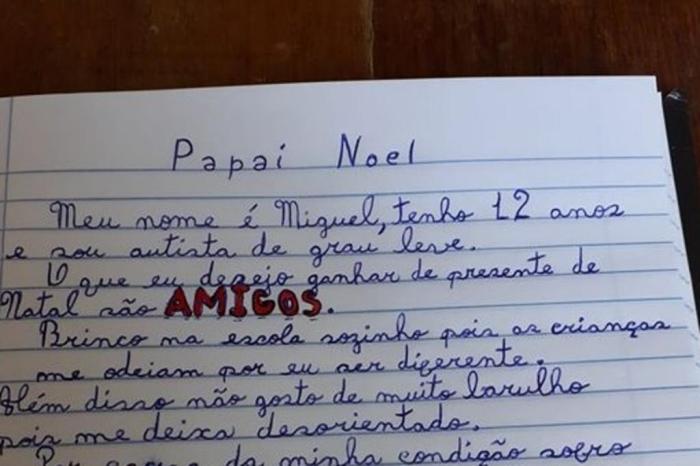 Papai Noel
Meu nome é Miguel, tenho 12 anos
e sou autista de grau leve.
O que eu desejo ganhar de presente de
Natal são AMIGOS.
Brinco na escola sozinho pois as crianças
me odeiam por eu ser diferente.
Além disso não gosto de muito barulho
pois me deixa desorientado.
Por causa da minha condição sofro